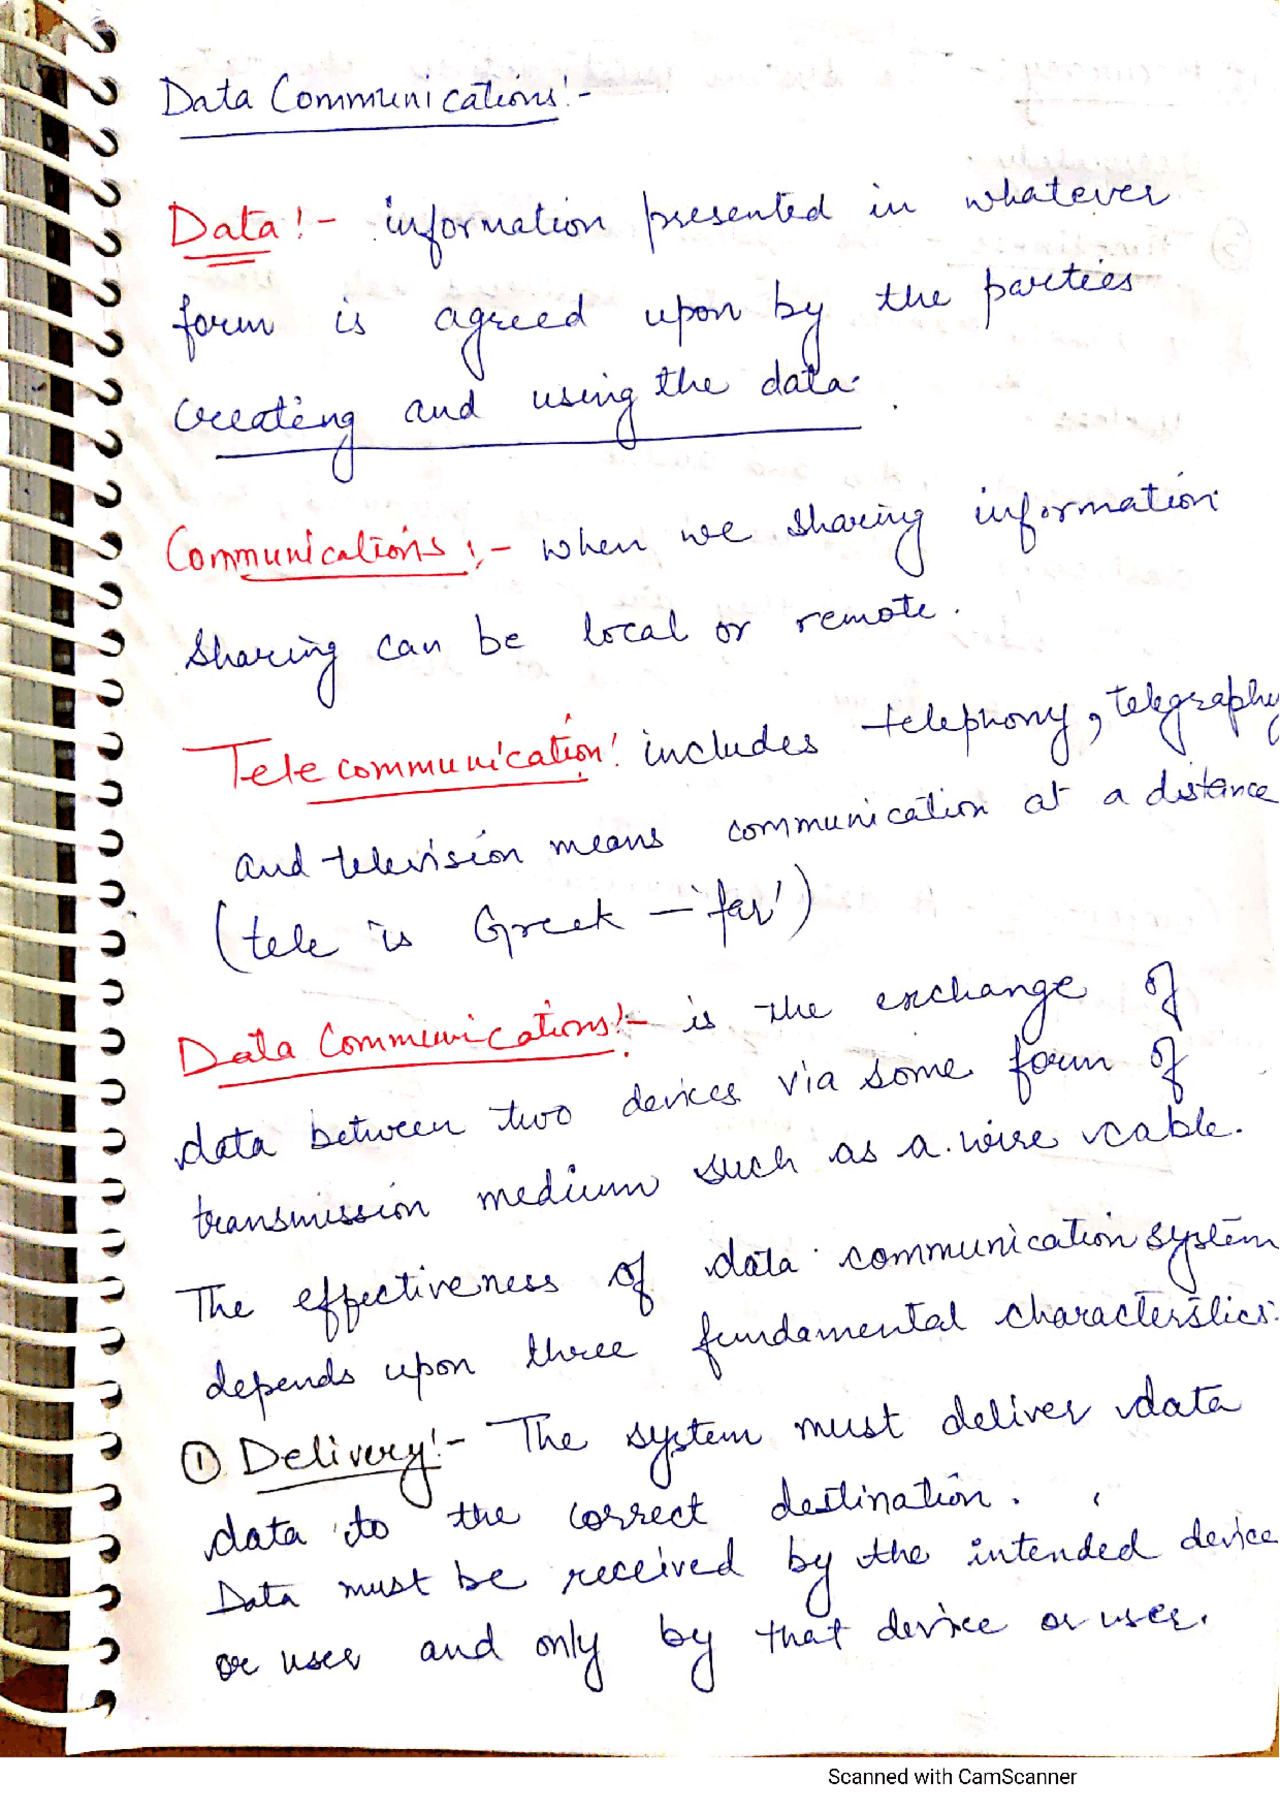 Data Communications:-
Data:- information presented in whatever
form is agreed upon by the parties
creating and using the data.
Communications:- when we sharing information
sharing can be local or remote.
Telecommunication: includes telephony, telegraphy
and television means communication at a distance
(tele is Greek - 'far')
Data Communications:- is the exchange of
data between two devices via some form of
transmission medium such as a wire cable.
The effectiveness of data communication system
depends upon three fundamental characterstics:
① Delivery:- The system must deliver data
data to the correct destination.
Data must be received by the intended device
or user and only by that device or user.
Scanned with CamScanner